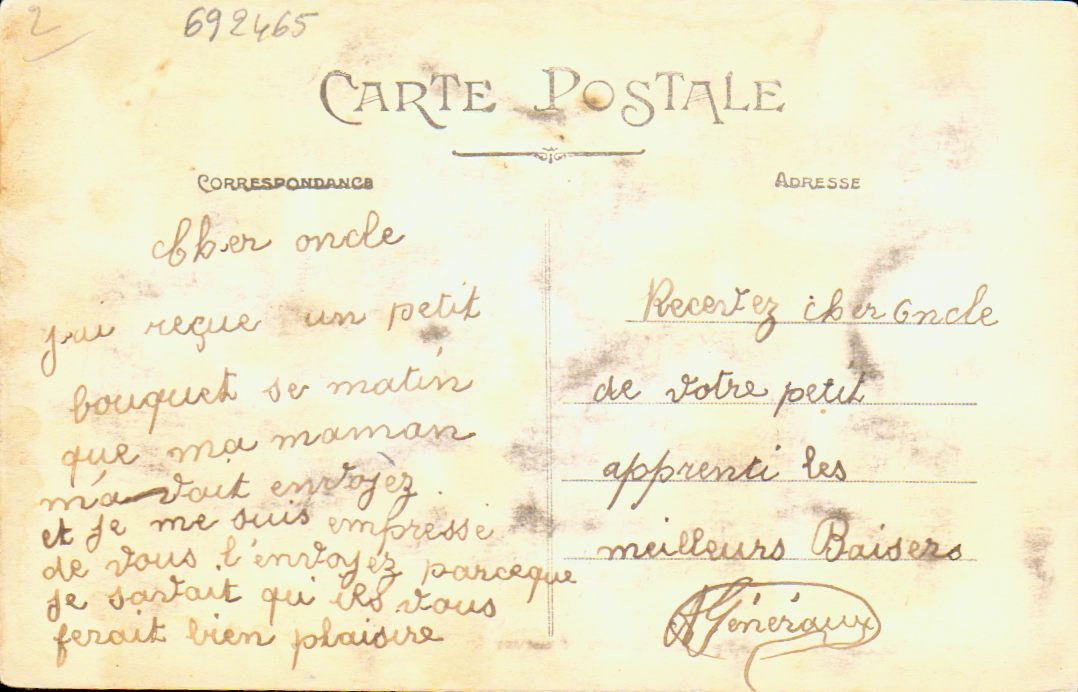 2
692465
CARTE POSTALE
CORRESPONDANCE
ADRESSE
Cher oncle
j'ai reçue un petit
bouquet se matin
que ma maman
m'a vait envoyéz
et je me suis empressé
de vous l'envoyéz parceque
je savait qui ils vous
ferait bien plaisire
Recevez cher oncle
de votre petit
apprenti les
meilleurs Baisers
A Généraux